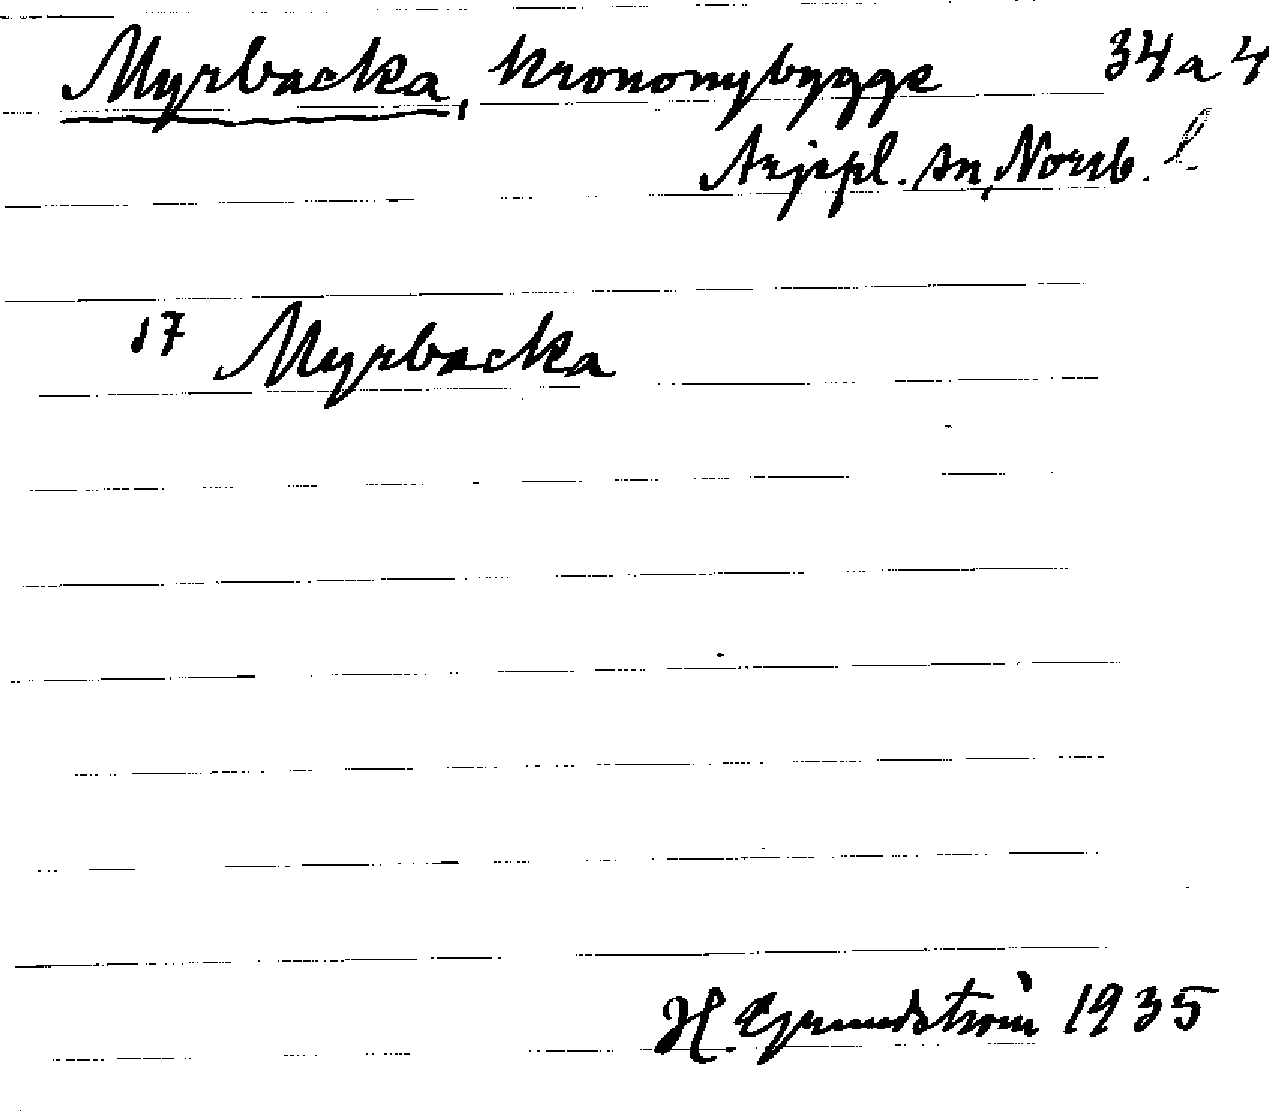 Myrbacka, Krononybygge 34 a 4
Arjepl. sn, Norrb. l.
17 Myrbacka
H. Grundström 1935